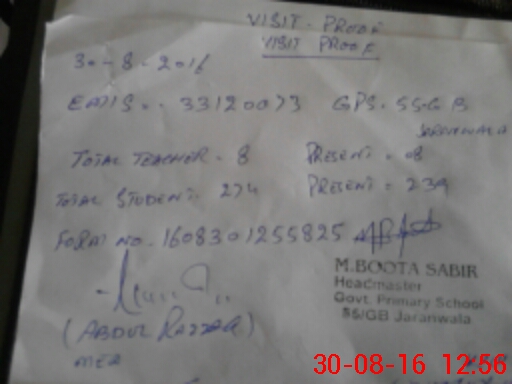 VISIT - PROOF
VISIT PROOF
30-8-2016
EMIS.. 33120073 GPS. 55GB
JARANWALA
TOTAL TEACHER. 8 PRESENT = 08
TOTAL STUDENT. 274 PRESENT = 239
FORM NO. 1608301255825
M.BOOTA SABIR
Headmaster
Govt. Primary School
55/GB Jaranwala
(ABDUL RAZZAQ)
MEA
30-08-16 12:56